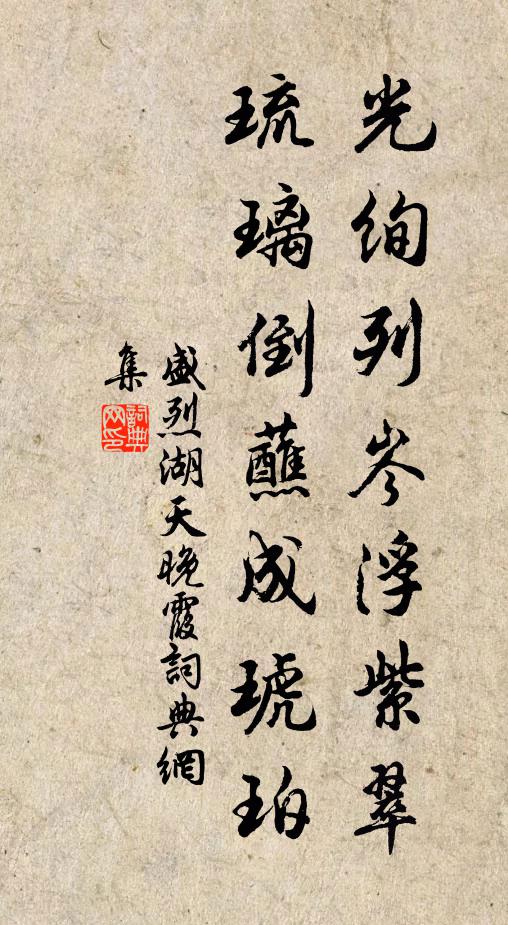 光絢列岑浮紫翠
琉璃倒蘸成琥珀
盛烈湖天晚霞詞典網
集
詞典
网印